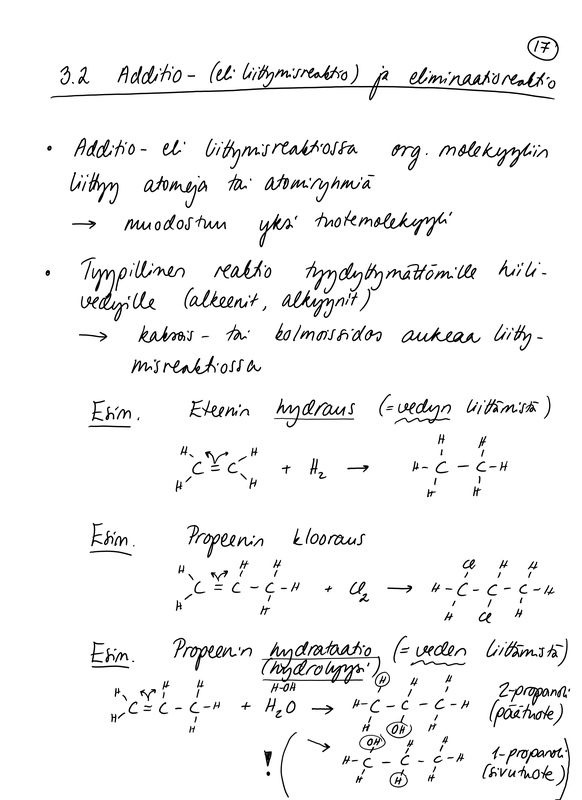 17
3.2 Additio- (eli liittymisreaktio) ja eliminaatioreaktio
• Additio- eli liittymisreaktiossa org. molekyyliin
liittyy atomeja tai atomiryhmiä
→ muodostuu yksi tuotemolekyyli
• Tyypillinen reaktio tyydyttymättömille hiili-
vedyille (alkeenit, alkyynit)
→ kaksois- tai kolmoissidos aukeaa liitty-
misreaktiossa
Esim. Eteenin hydraus (=vedyn liittämistä)
H H H H
C = C + H₂ → H - C - C - H
H H H H
Esim. Propeenin klooraus
H H H Cl H H
C = C - C - H + Cl₂ → H - C - C - C - H
H H H Cl H
Esim. Propeenin hydrataatio (= veden liittämistä)
(hydrolyysi)
H-OH
H H H H H H 2-propanoli
C = C - C - H + H₂O → H - C - C - C - H (päätuote)
H H H OH H
! ( → OH H H 1-propanoli
H - C - C - C - H (sivutuote) )
H H H